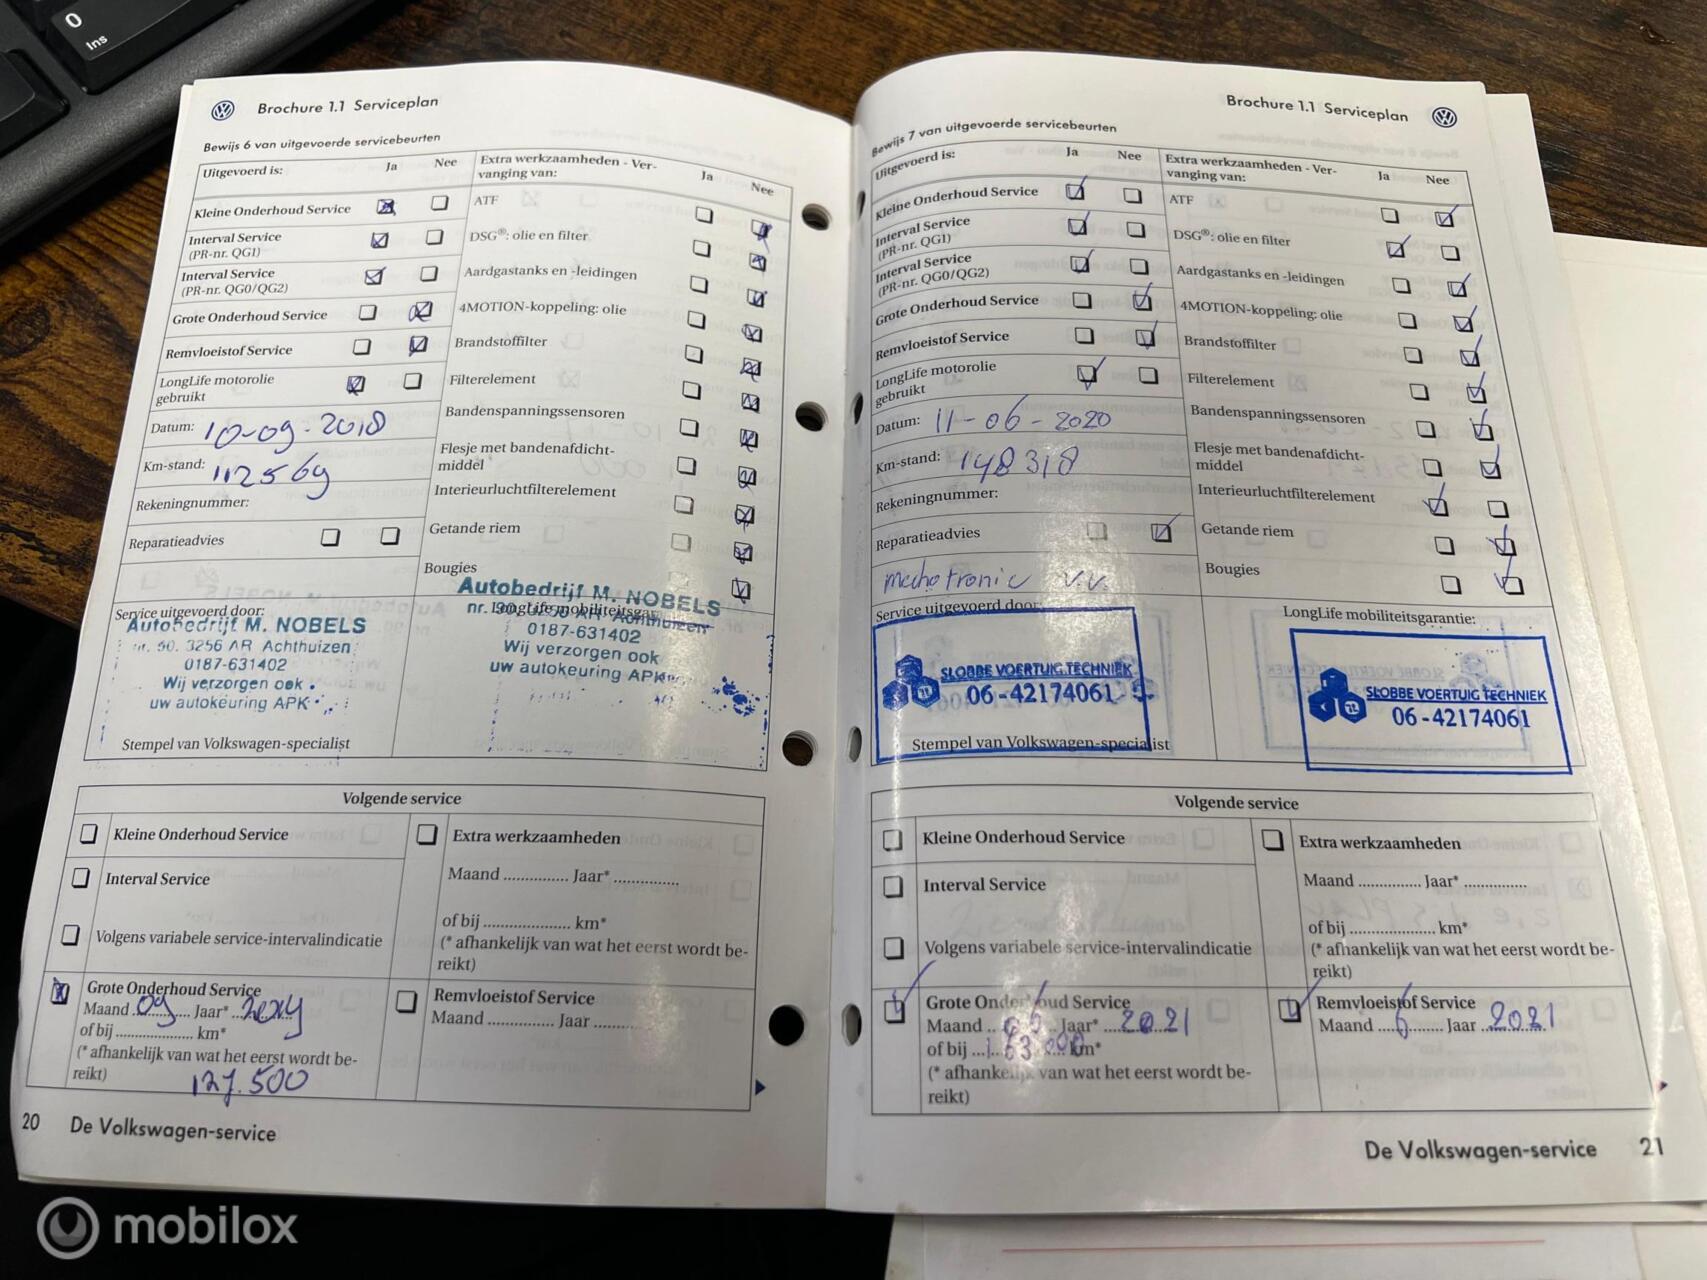 0
Ins
Brochure 1.1 Serviceplan
Bewijs 6 van uitgevoerde servicebeurten
Uitgevoerd is: Ja Nee
Extra werkzaamheden - Ver-
vanging van: Ja Nee
Kleine Onderhoud Service
Interval Service
(PR-nr. QG1)
Interval Service
(PR-nr. QG0/QG2)
Grote Onderhoud Service
Remvloeistof Service
LongLife motorolie
gebruikt
Datum: 10-09-2018
Km-stand: 112569
Rekeningnummer:
Reparatieadvies
ATF
DSG®: olie en filter
Aardgastanks en -leidingen
4MOTION-koppeling: olie
Brandstoffilter
Filterelement
Bandenspanningssensoren
Flesje met bandenafdicht-
middel
Interieurluchtfilterelement
Getande riem
Bougies
Service uitgevoerd door:
Autobedrijf M. NOBELS
nr. 90, 3256 AR Achthuizen
0187-631402
Wij verzorgen ook
uw autokeuring APK
Stempel van Volkswagen-specialist
LongLife mobiliteitsgarantie:
Autobedrijf M. NOBELS
nr. 90, 3256 AR Achthuizen
0187-631402
Wij verzorgen ook
uw autokeuring APK
Volgende service
Kleine Onderhoud Service
Interval Service
Volgens variabele service-intervalindicatie
Grote Onderhoud Service
Maand 09 Jaar* 2019
of bij .................... km*
(* afhankelijk van wat het eerst wordt be-
reikt)
127.500
Extra werkzaamheden
Maand ............... Jaar* ...............
of bij .................... km*
(* afhankelijk van wat het eerst wordt be-
reikt)
Remvloeistof Service
Maand ............... Jaar ...............
20 De Volkswagen-service
Brochure 1.1 Serviceplan
Bewijs 7 van uitgevoerde servicebeurten
Uitgevoerd is: Ja Nee
Extra werkzaamheden - Ver-
vanging van: Ja Nee
Kleine Onderhoud Service
Interval Service
(PR-nr. QG1)
Interval Service
(PR-nr. QG0/QG2)
Grote Onderhoud Service
Remvloeistof Service
LongLife motorolie
gebruikt
Datum: 11-06-2020
Km-stand: 148318
Rekeningnummer:
Reparatieadvies
mechotronic v.v.
ATF
DSG®: olie en filter
Aardgastanks en -leidingen
4MOTION-koppeling: olie
Brandstoffilter
Filterelement
Bandenspanningssensoren
Flesje met bandenafdicht-
middel
Interieurluchtfilterelement
Getande riem
Bougies
Service uitgevoerd door:
SLOBBE VOERTUIG TECHNIEK
06-42174061
Stempel van Volkswagen-specialist
LongLife mobiliteitsgarantie:
SLOBBE VOERTUIG TECHNIEK
06-42174061
Volgende service
Kleine Onderhoud Service
Interval Service
Volgens variabele service-intervalindicatie
Grote Onderhoud Service
Maand 06 Jaar* 2021
of bij 163.000 km*
(* afhankelijk van wat het eerst wordt be-
reikt)
Extra werkzaamheden
Maand ............... Jaar* ...............
of bij .................... km*
(* afhankelijk van wat het eerst wordt be-
reikt)
Remvloeistof Service
Maand 6 Jaar 2021
De Volkswagen-service 21
mobilox